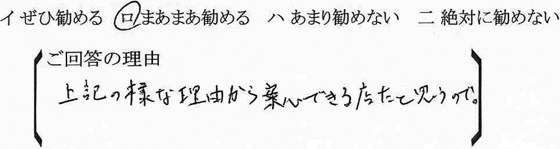 イ ぜひ勧める ロ まあまあ勧める ハ あまり勧めない ニ 絶対に勧めない
ご回答の理由
上記の様な理由から安心できる店だと思うので。